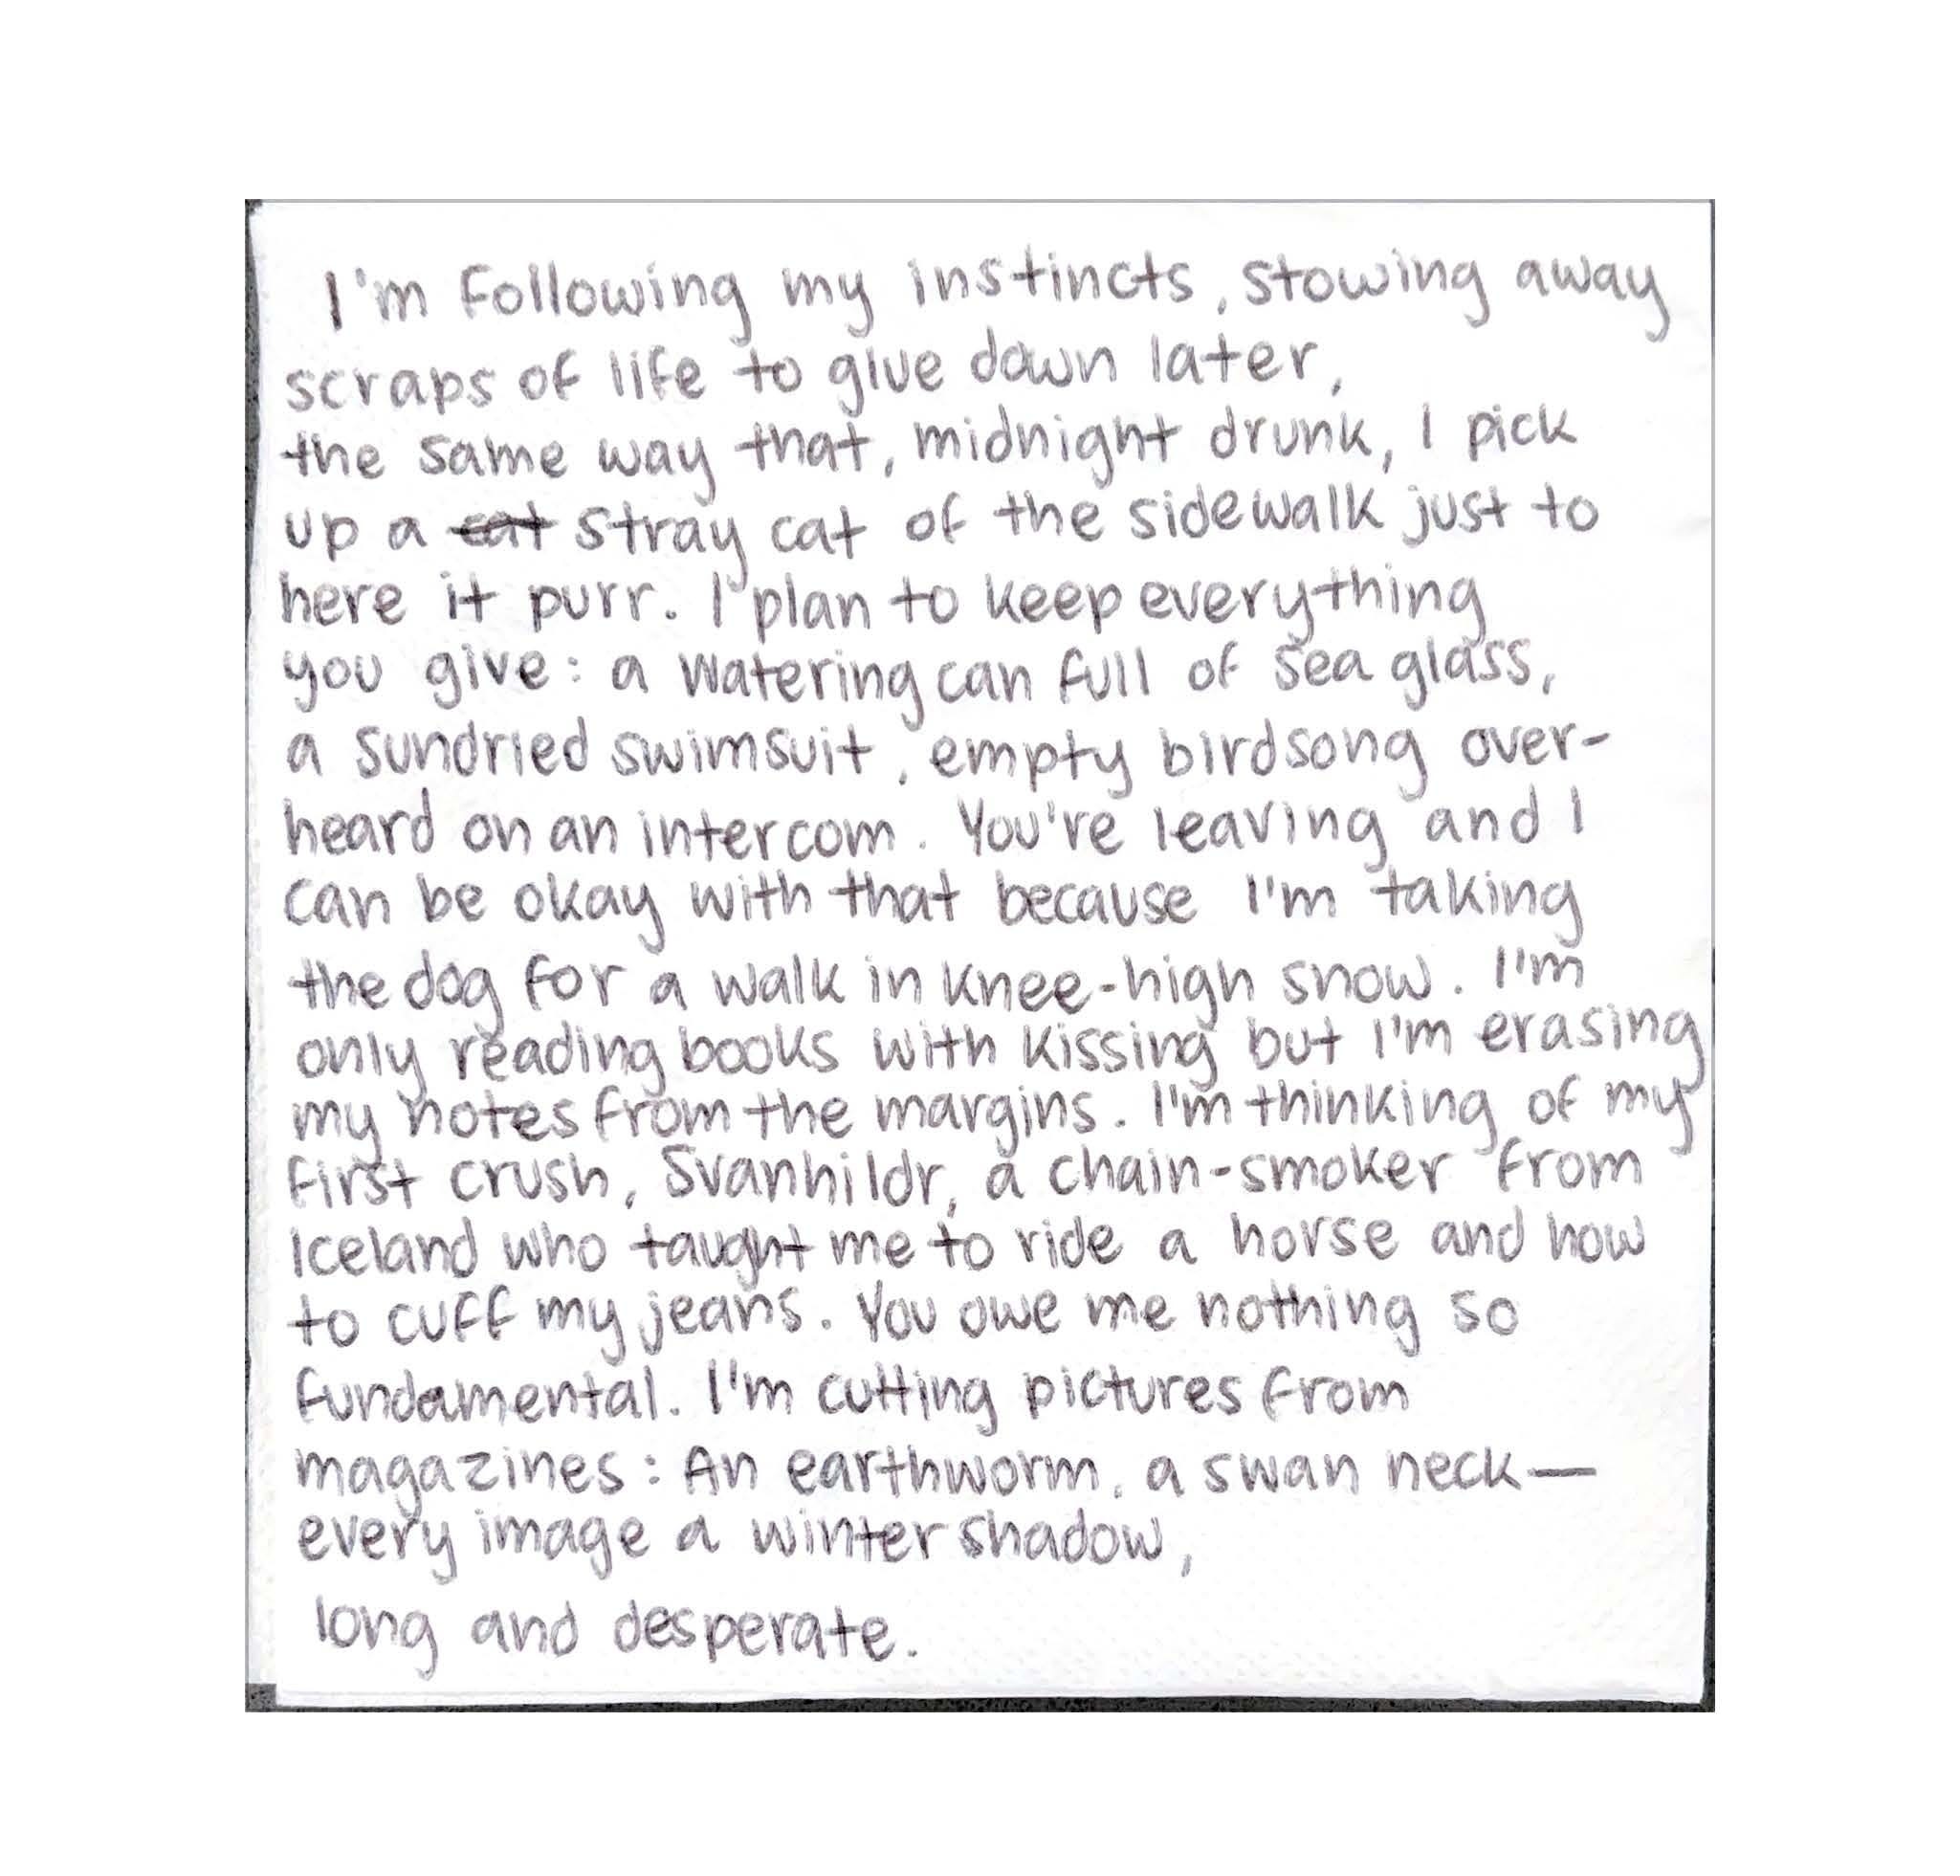 I'm following my instincts, stowing away
scraps of life to glue down later,
the same way that, midnight drunk, I pick
up a cat stray cat of the sidewalk just to
here it purr. I plan to keep everything
you give: a watering can full of sea glass,
a sundried swimsuit, empty birdsong over-
heard on an intercom. You're leaving and I
can be okay with that because I'm taking
the dog for a walk in knee-high snow. I'm
only reading books with kissing but I'm erasing
my notes from the margins. I'm thinking of my
first crush, Svanhildr, a chain-smoker from
Iceland who taught me to ride a horse and how
to cuff my jeans. You owe me nothing so
fundamental. I'm cutting pictures from
magazines: An earthworm, a swan neck—
every image a winter shadow,
long and desperate.